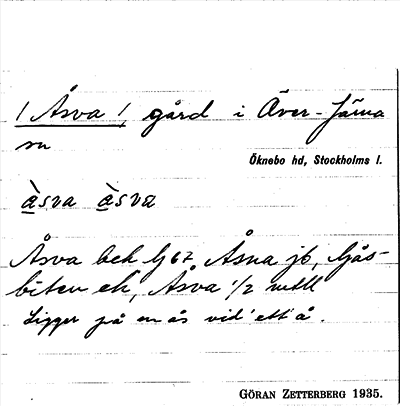 / Åsva /, gård i Över-Järna
sn
Öknebo hd, Stockholms l.
àsva àsva
Åsva bek Gj 67 Åsna jb, Gjås-
biten ek, Åsva 1/2 mtl
Ligger på en ås vid ett å.
GÖRAN ZETTERBERG 1935.